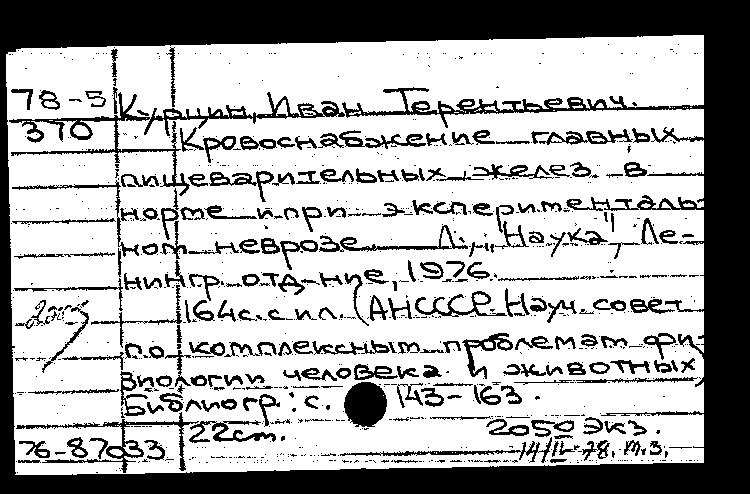 78-5 Курцин, Иван Терентьевич.
370 Кровоснабжение главных
пищеварительных желез в
норме и при эксперименталь-
ном неврозе. Л., "Наука", Ле-
нингр. отд-ние, 1976.
164с. с ил. (АНСССР. Науч. совет
по комплексным проблемам фи-
зиологии человека и животных)
Библиогр.: с. 143-163.
22см. 2050 экз.
76-87033 14/IV-78. т.з.